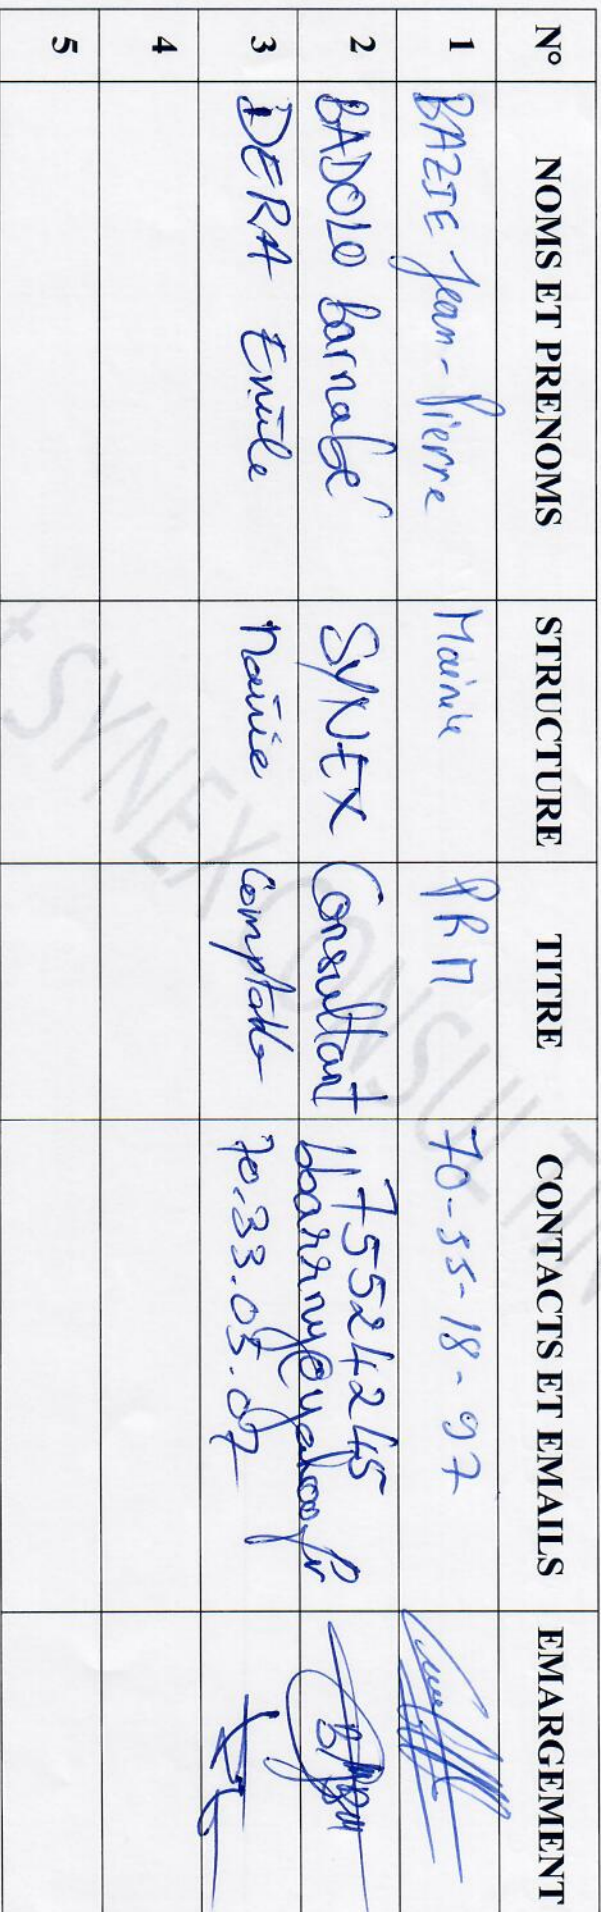 N° NOMS ET PRENOMS STRUCTURE TITRE CONTACTS ET EMAILS EMARGEMENT
1 BAZIE Jean-Pierre Mairie PRM 70-55-18-97
2 BADOLO Barnabé SYNEX Consultant 75524245
bbarrny@yahoo.fr
3 DERA Emile Mairie Comptable 70.33.05.07
4
5
+ SYNEX CONSULTIN